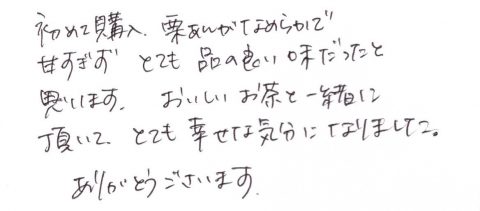 初めて購入、栗あんがなめらかで
甘すぎず とても 品の良い味だったと
思います。 おいしいお茶と一緒に
頂いて、とても幸せな気分になりました。
ありがとうございます。